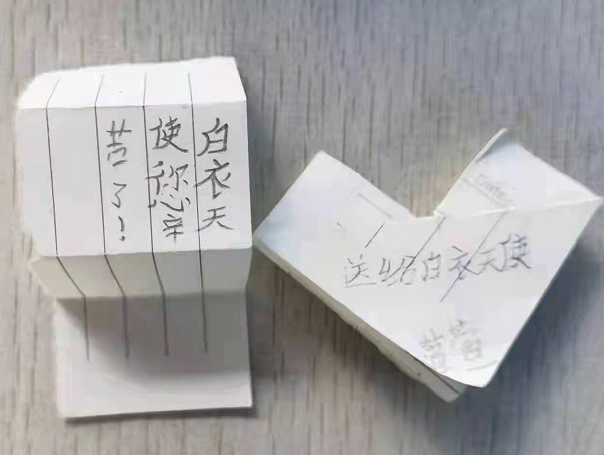 白衣天
使您辛
苦了！
送给白衣天使